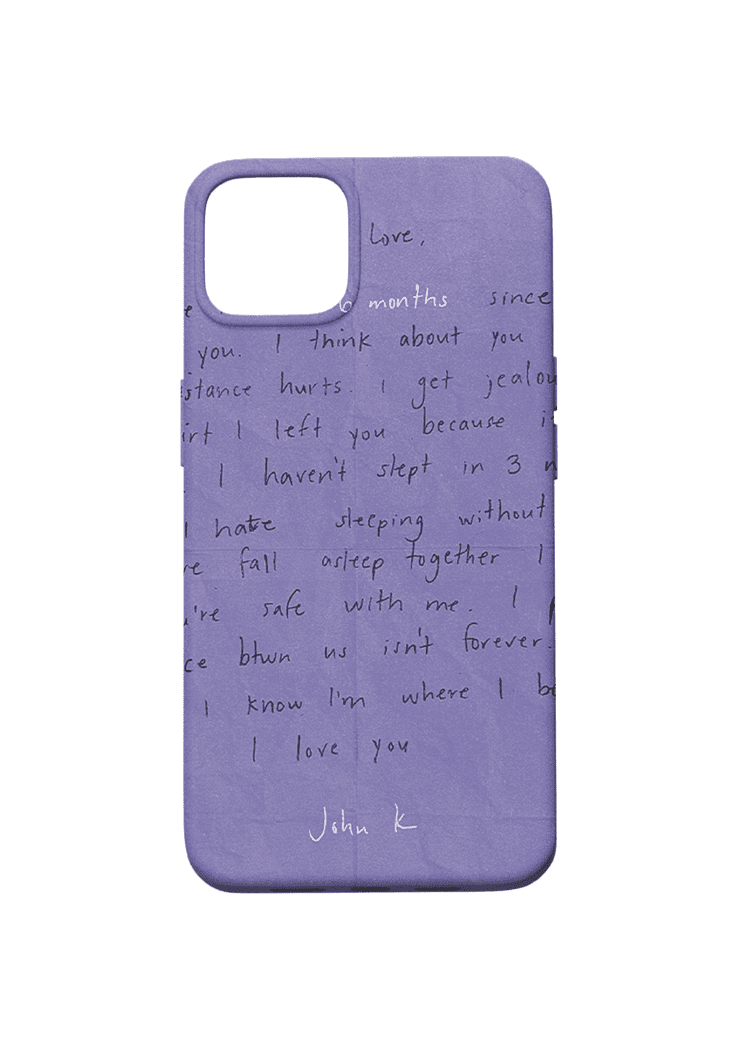 Love,
e 6 months since
you. I think about you
istance hurts. I get jealou
irt I left you because i
. I haven't slept in 3 n
I hate sleeping without
re fall asleep together I
u're safe with me. I p
ce btwn us isn't forever.
I know I'm where I be
I love you
John K